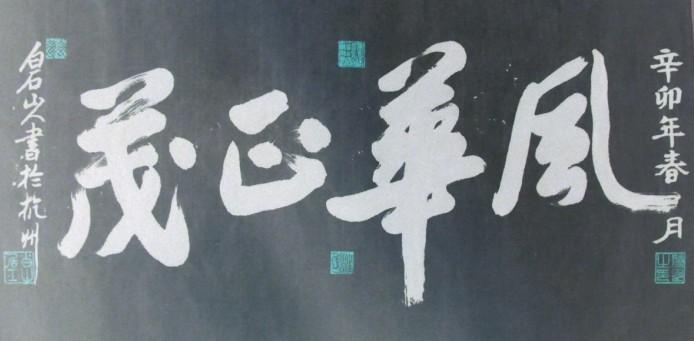 辛卯年春月
風華正茂
白石山人書於杭州